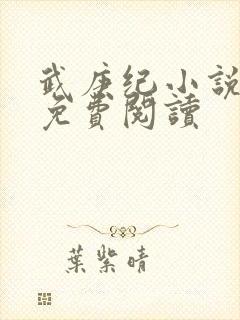 武庚纪小说
免費閱讀
葉紫晴